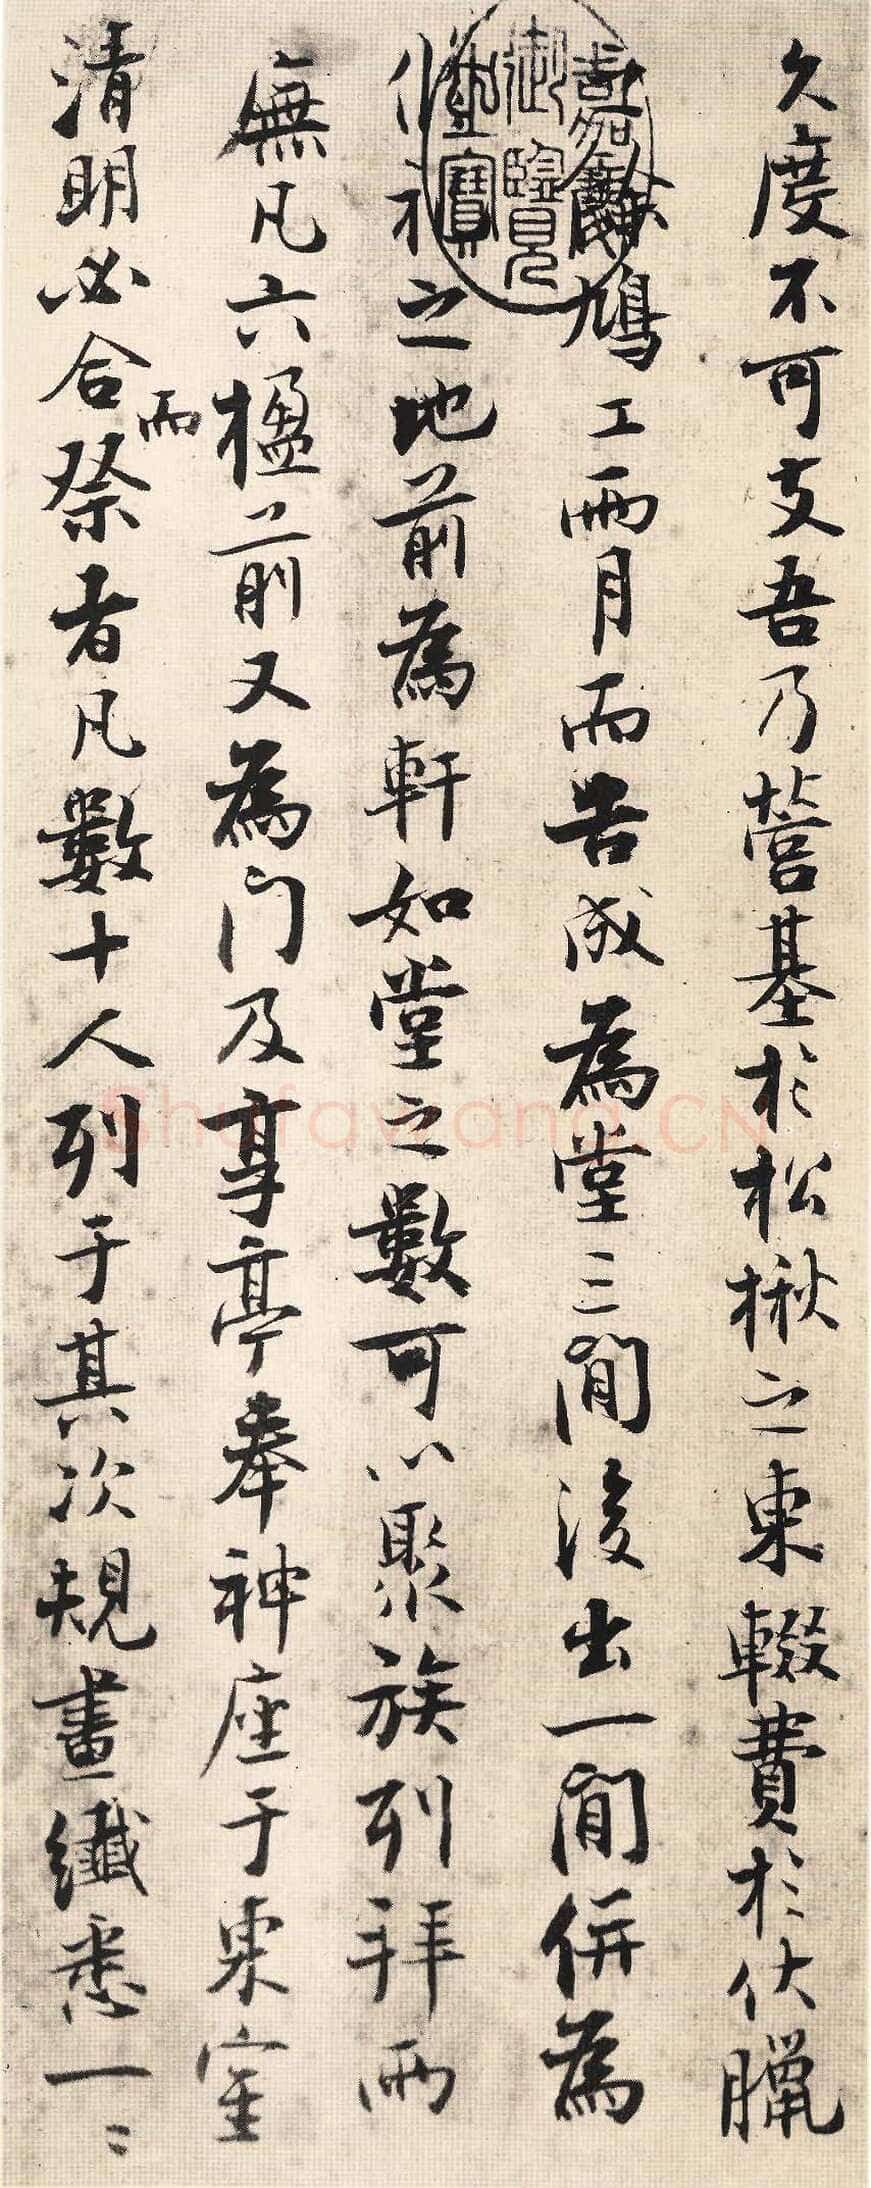 久廢不可支吾乃營基於松楸之東輟費於伏臘
之餘鳩工兩月而告成為堂三間後出一間併為
修祀之地前為軒如堂之數可以聚族列拜兩
廡凡六楹前又為門及享亭奉神座于東室
清明必合祭
而
者凡數十人列于其次規畫纖悉一〻
嘉慶御覽之寶
Shufawang.CN